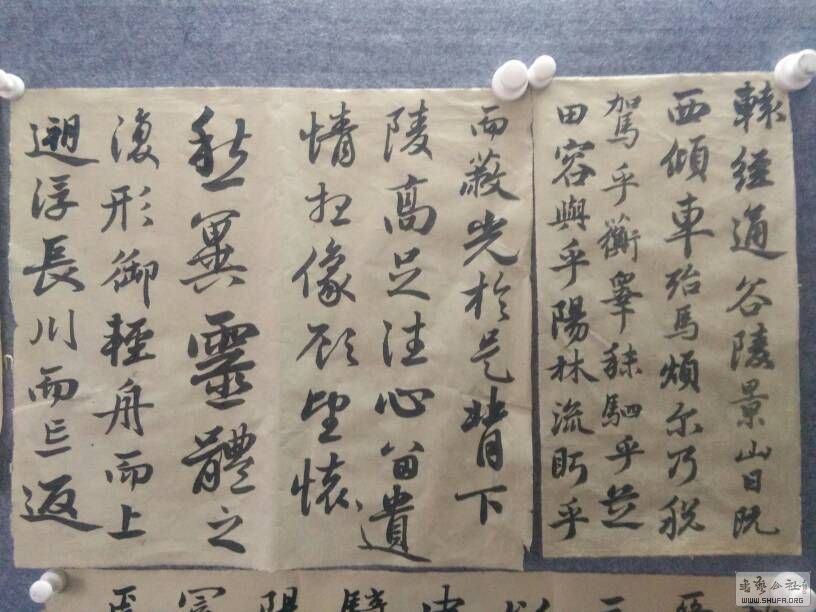 轅經通谷陵景山日既
西傾車殆馬煩尔乃稅
駕乎蘅皋秣駟乎芝
田容與乎陽林流眄乎
而蔽光於是背下
陵高足往心留遺
情想像顧望懷
愁冀靈體之
復形御輕舟而上
遡浮長川而忘返
WWW.SHUFA.ORG